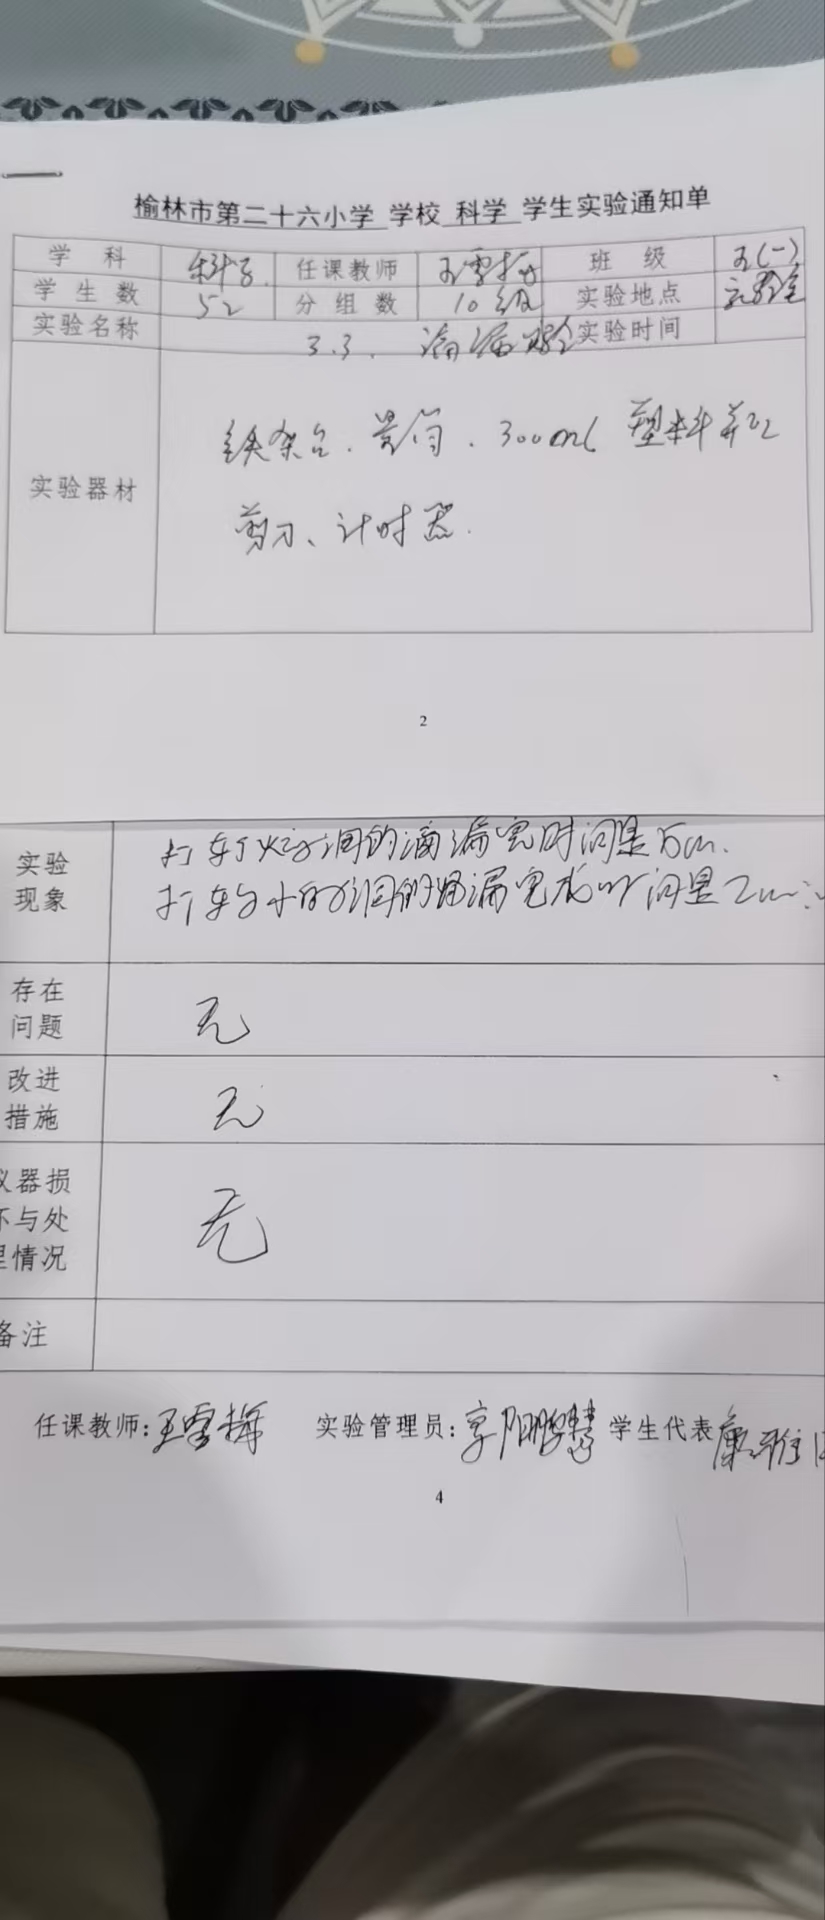 榆林市第二十六小学 学校 科学 学生实验通知单
学科 科学 任课教师 班级 五(一)
学生数 52 分组数 10组 实验地点 实验室
实验名称 3.3. 滴漏实验 实验时间
实验器材
铁架台、量筒、300ml 塑料瓶
剪刀、计时器.
2
实验
现象
滴漏 时间是
漏完 时间是
存在
问题
无
改进
措施
无
仪器损
坏与处
理情况
无
备注
任课教师: 实验管理员: 学生代表
4